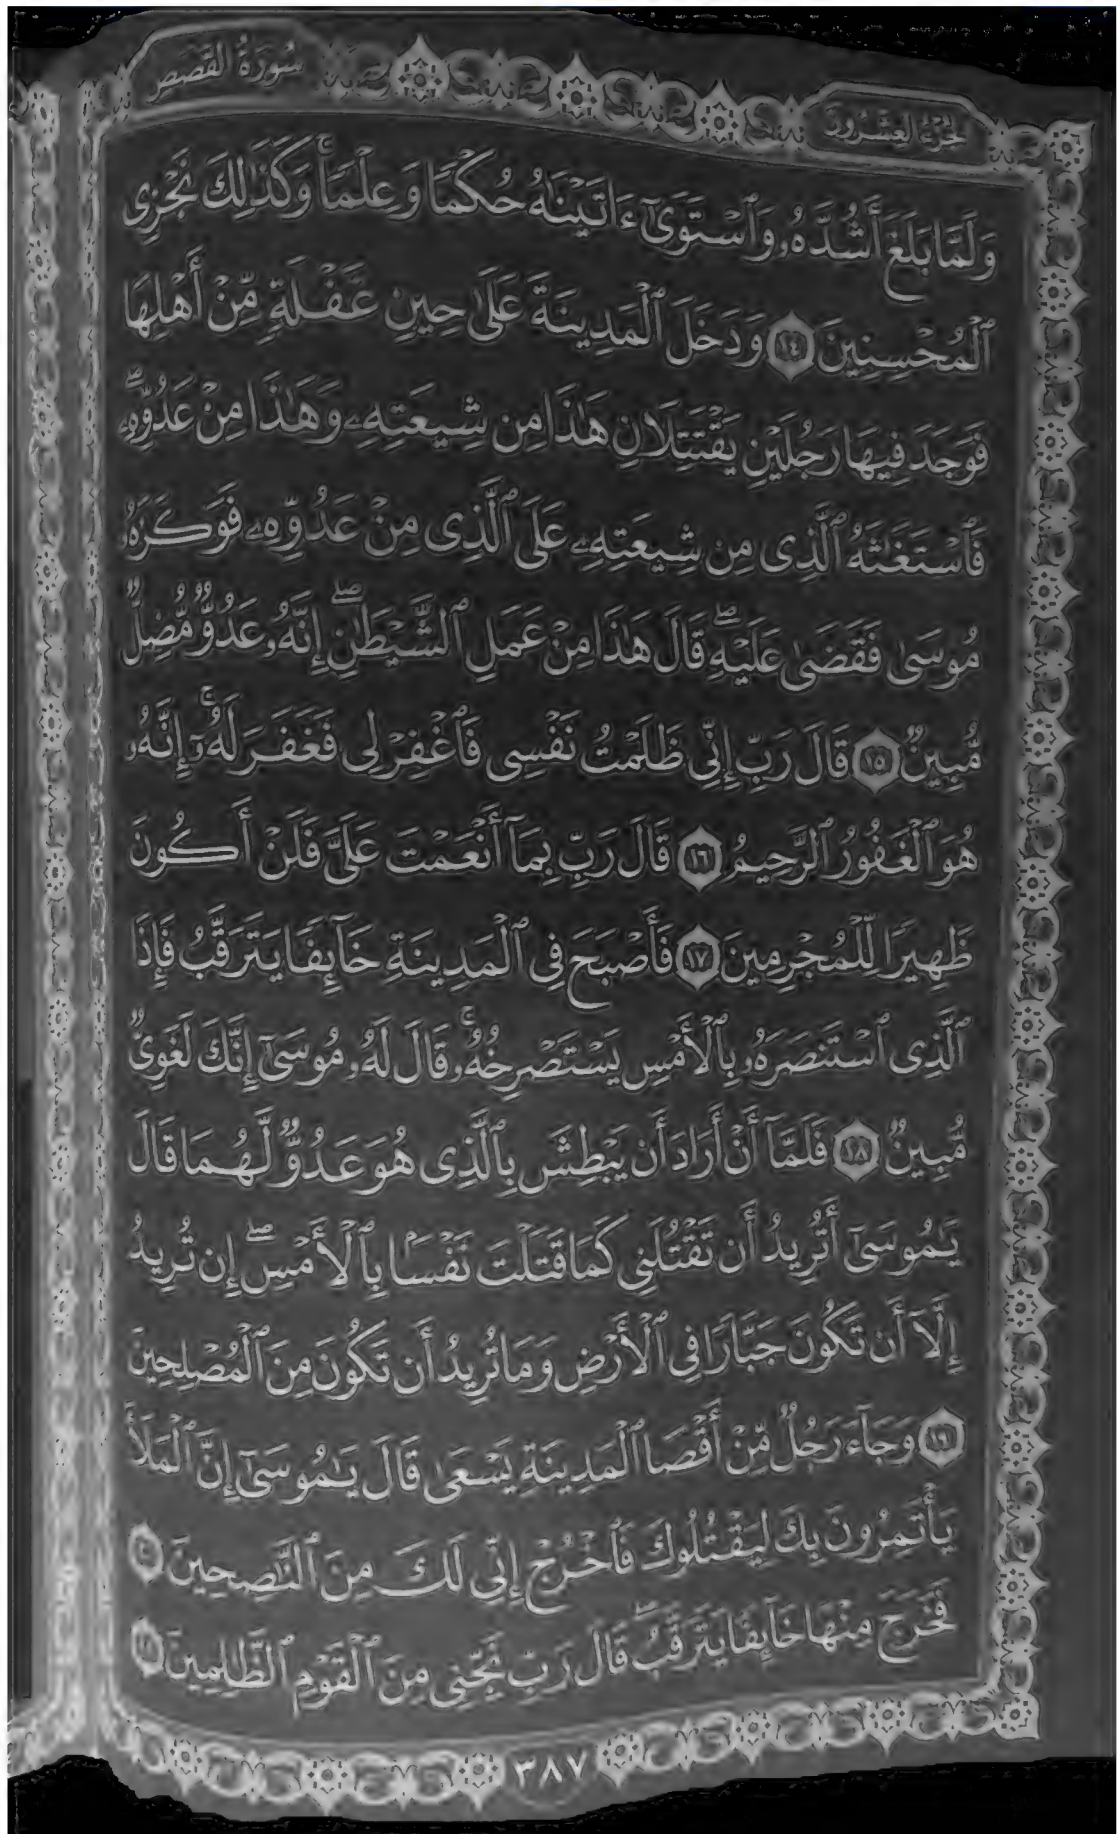 الجزء العشرون
سورة القصص
وَلَمَّا بَلَغَ أَشُدَّهُۥ وَٱسْتَوَىٰٓ ءَاتَيْنَٰهُ حُكْمًا وَعِلْمًا ۚ وَكَذَٰلِكَ نَجْزِى
ٱلْمُحْسِنِينَ ١٤ وَدَخَلَ ٱلْمَدِينَةَ عَلَىٰ حِينِ غَفْلَةٍ مِّنْ أَهْلِهَا
فَوَجَدَ فِيهَا رَجُلَيْنِ يَقْتَتِلَانِ هَٰذَا مِن شِيعَتِهِۦ وَهَٰذَا مِنْ عَدُوِّهِۦ ۖ
فَٱسْتَغَٰثَهُ ٱلَّذِى مِن شِيعَتِهِۦ عَلَى ٱلَّذِى مِنْ عَدُوِّهِۦ فَوَكَزَهُۥ
مُوسَىٰ فَقَضَىٰ عَلَيْهِ ۖ قَالَ هَٰذَا مِنْ عَمَلِ ٱلشَّيْطَٰنِ ۖ إِنَّهُۥ عَدُوٌّ مُّضِلٌّ
مُّبِينٌ ١٥ قَالَ رَبِّ إِنِّى ظَلَمْتُ نَفْسِى فَٱغْفِرْ لِى فَغَفَرَ لَهُۥٓ ۚ إِنَّهُۥ
هُوَ ٱلْغَفُورُ ٱلرَّحِيمُ ١٦ قَالَ رَبِّ بِمَآ أَنْعَمْتَ عَلَىَّ فَلَنْ أَكُونَ
ظَهِيرًا لِّلْمُجْرِمِينَ ١٧ فَأَصْبَحَ فِى ٱلْمَدِينَةِ خَآئِفًا يَتَرَقَّبُ فَإِذَا
ٱلَّذِى ٱسْتَنصَرَهُۥ بِٱلْأَمْسِ يَسْتَصْرِخُهُۥ ۚ قَالَ لَهُۥ مُوسَىٰٓ إِنَّكَ لَغَوِىٌّ
مُّبِينٌ ١٨ فَلَمَّآ أَنْ أَرَادَ أَن يَبْطِشَ بِٱلَّذِى هُوَ عَدُوٌّ لَّهُمَا قَالَ
يَٰمُوسَىٰٓ أَتُرِيدُ أَن تَقْتُلَنِى كَمَا قَتَلْتَ نَفْسًۢا بِٱلْأَمْسِ ۖ إِن تُرِيدُ
إِلَّآ أَن تَكُونَ جَبَّارًا فِى ٱلْأَرْضِ وَمَا تُرِيدُ أَن تَكُونَ مِنَ ٱلْمُصْلِحِينَ
١٩ وَجَآءَ رَجُلٌ مِّنْ أَقْصَا ٱلْمَدِينَةِ يَسْعَىٰ قَالَ يَٰمُوسَىٰٓ إِنَّ ٱلْمَلَأَ
يَأْتَمِرُونَ بِكَ لِيَقْتُلُوكَ فَٱخْرُجْ إِنِّى لَكَ مِنَ ٱلنَّٰصِحِينَ ٢٠
فَخَرَجَ مِنْهَا خَآئِفًا يَتَرَقَّبُ ۖ قَالَ رَبِّ نَجِّنِى مِنَ ٱلْقَوْمِ ٱلظَّٰلِمِينَ ٢١
٣٨٧